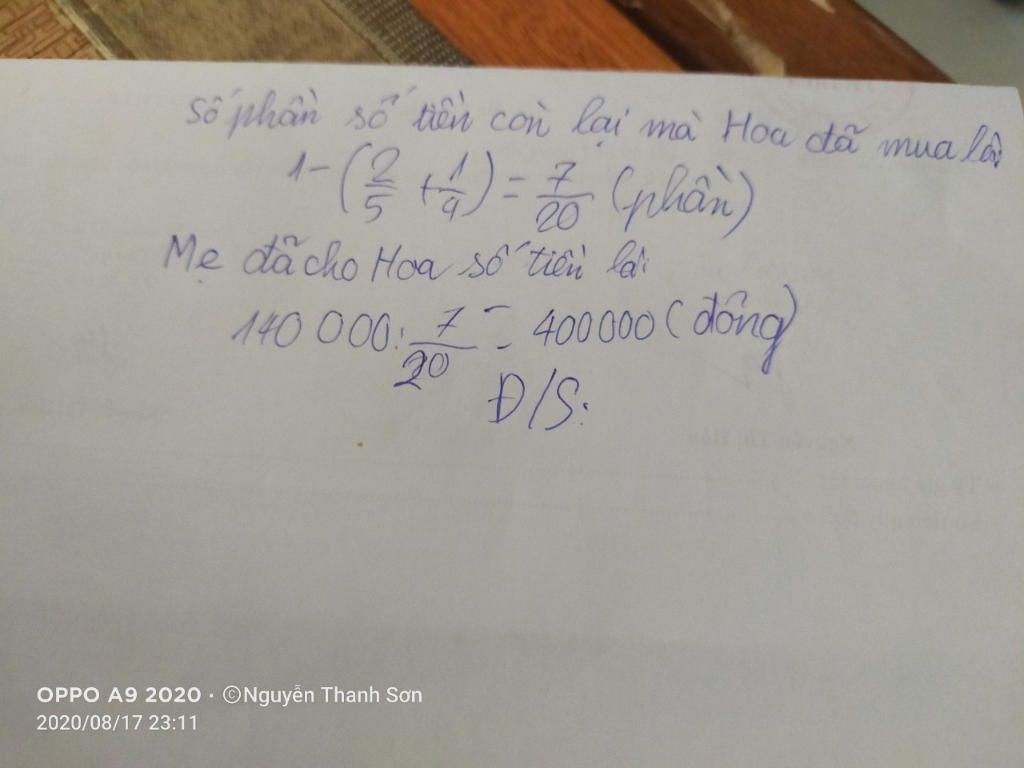 Số phần số tiền còn lại mà Hoa đã mua là:
1-(2/5 + 1/4) = 7/20 (phần)
Mẹ đã cho Hoa số tiền là:
140 000: 7/20 = 400000 (đồng)
Đ/S:
OPPO A9 2020 · ©Nguyễn Thanh Sơn
2020/08/17 23:11